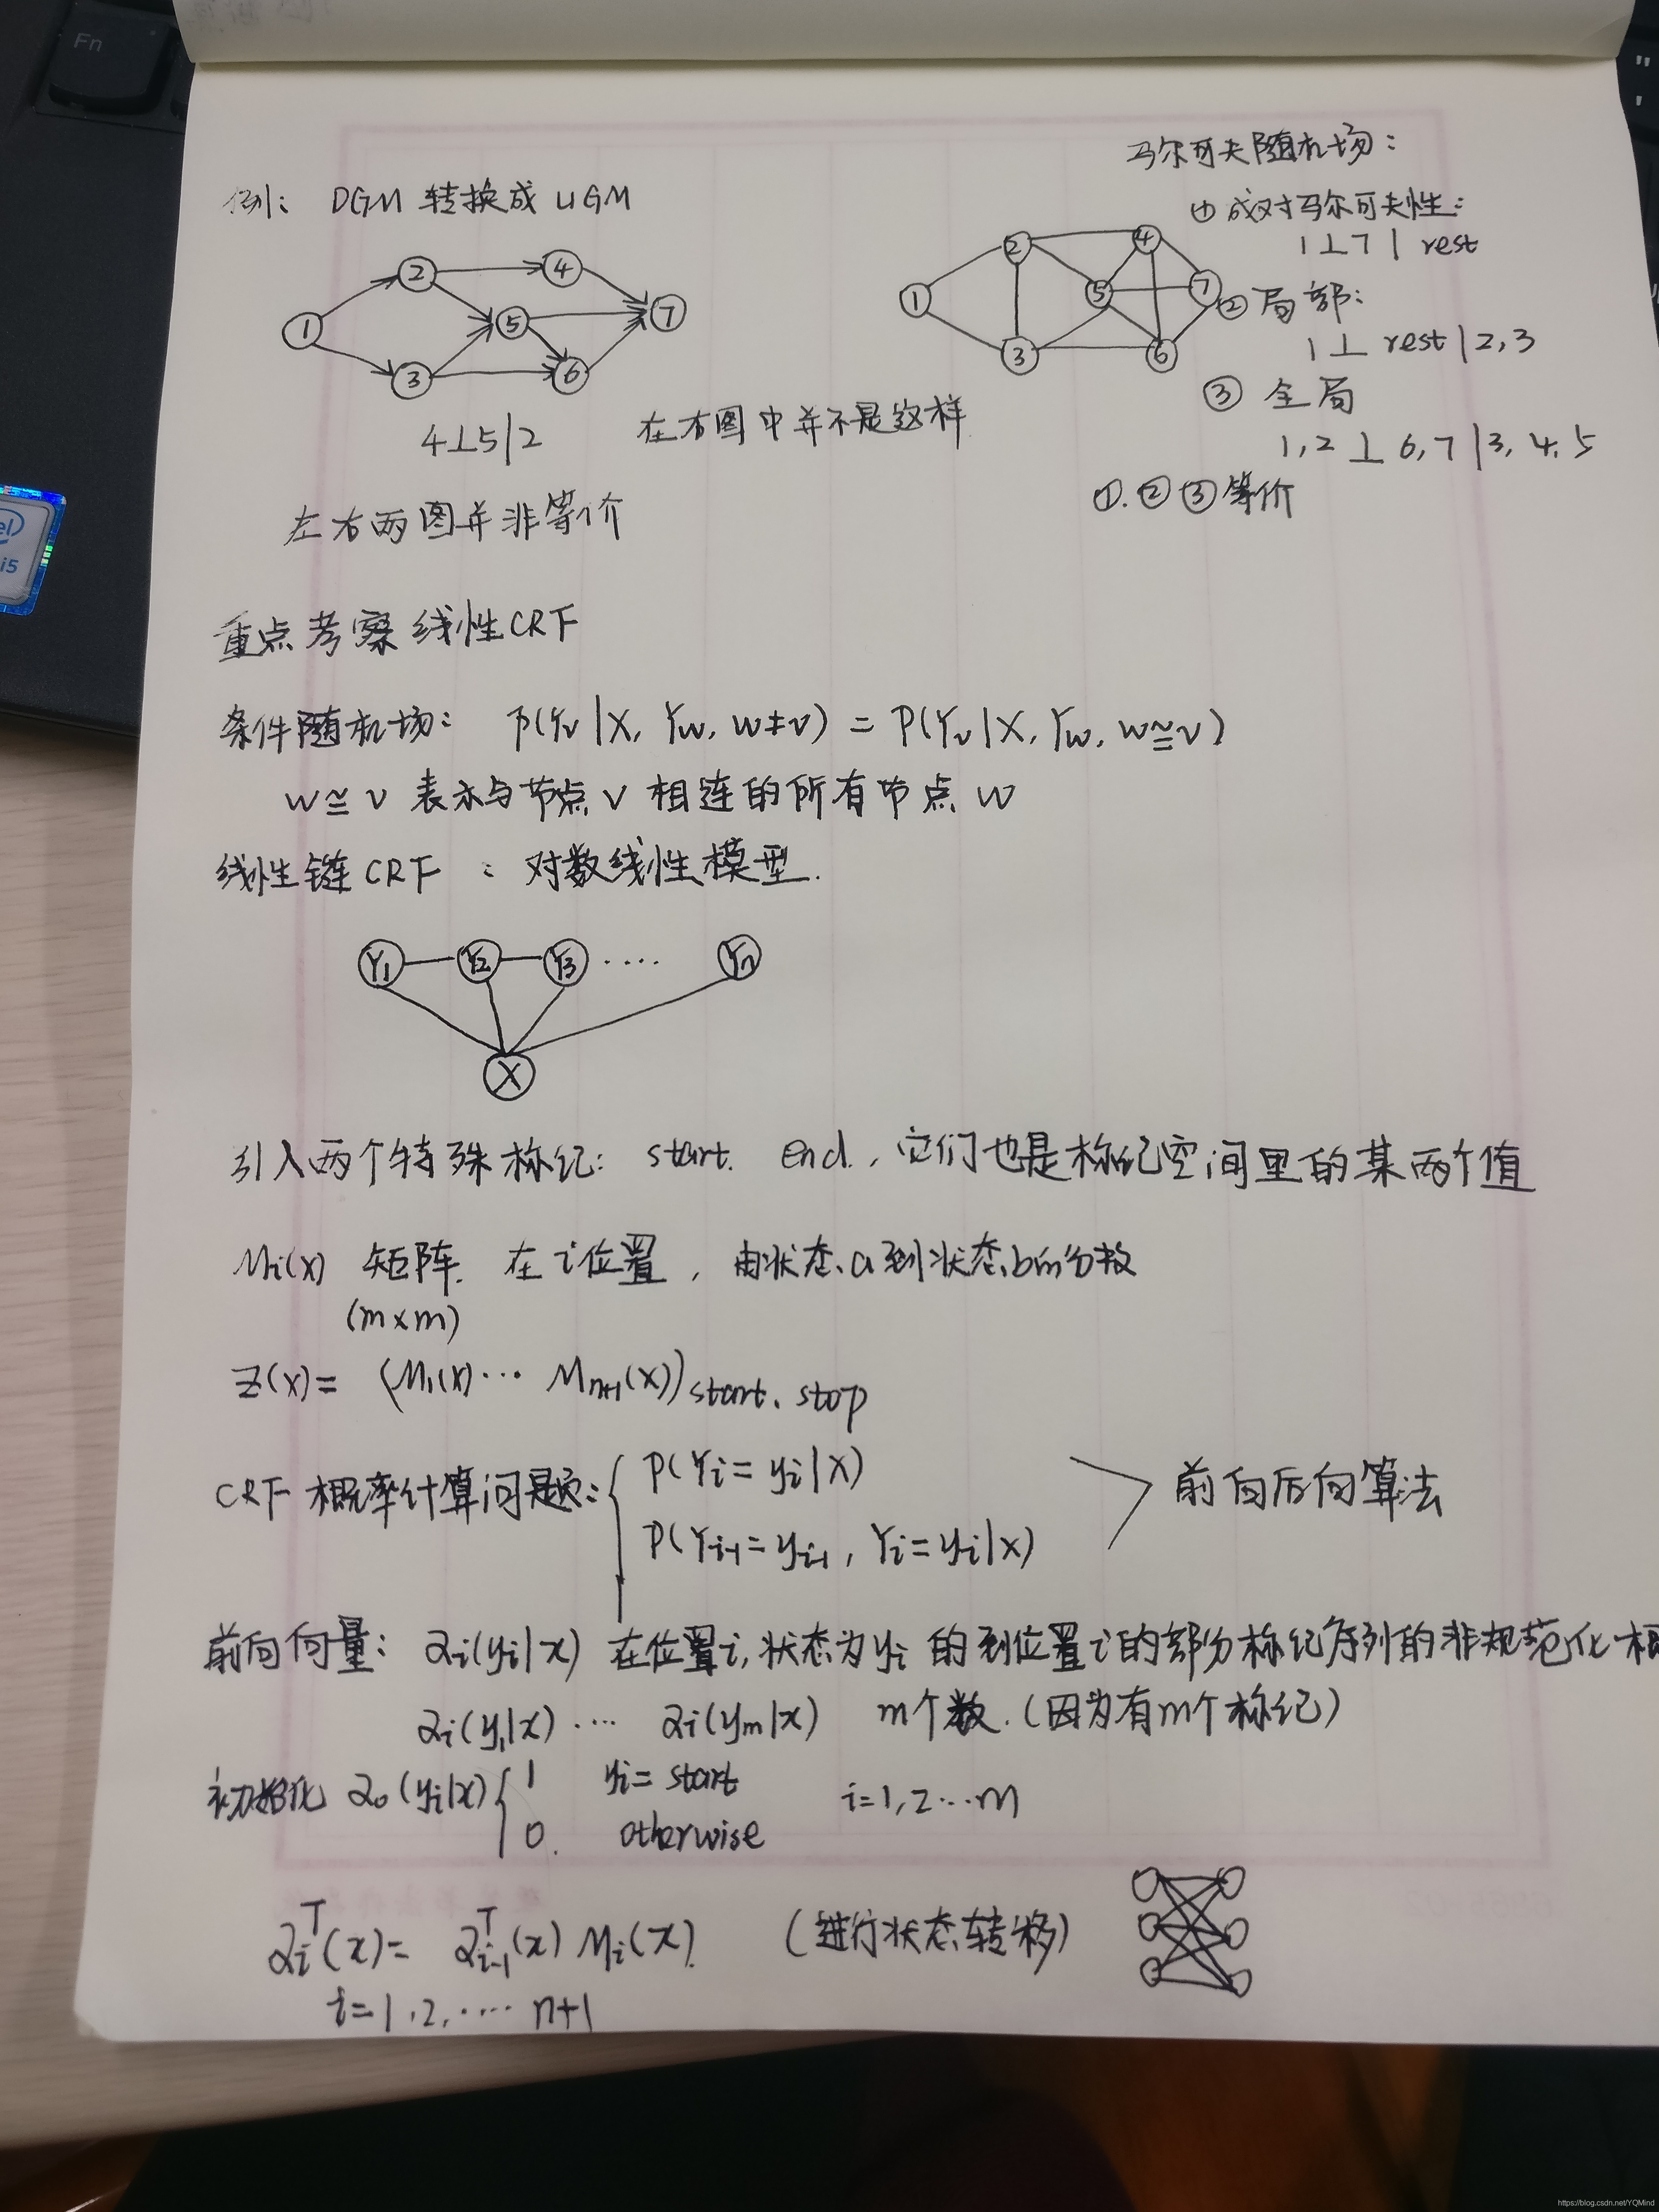 Fn
el
i5
马尔可夫随机场:
例: DGM 转换成 UGM
① 成对马尔可夫性:
1⊥7 | rest
1 2 3 4 5 6 7
1 2 3 4 5 6 7
② 局部:
1⊥ rest | 2,3
③ 全局
1,2 ⊥ 6,7 | 3,4,5
①.②③等价
4⊥5|2 在右图中并不是这样
左右两图并非等价
重点考察线性CRF
条件随机场: P(Yv|X, Yw, w≠v) = P(Yv|X, Yw, w≅v)
w≅v 表示与节点 v 相连的所有节点 w
线性链CRF : 对数线性模型.
Y1 Y2 Y3 .... Yn
X
引入两个特殊标记: start. end., 它们也是标记空间里的某两个值
Mi(x) 矩阵. 在i位置, 由状态a到状态b的分数
(m×m)
Z(x)= (M1(x)... Mn+1(x))start, stop
CRF 概率计算问题: { P(Yi=yi|X)
P(Yi-1=yi-1, Yi=yi|x)
前向后向算法
前向向量: αi(yi|x) 在位置i,状态为yi 的到位置i的部分标记序列的非规范化概
αi(y1|x) .... αi(ym|x) m个数.(因为有m个标记)
初始化 α0(yi|x) { 1 yi= start i=1,2...m
0. otherwise
αiT(x)= αi-1T(x) Mi(x). (进行状态转移)
i=1,2,.... n+1
https://blog.csdn.net/YQMind